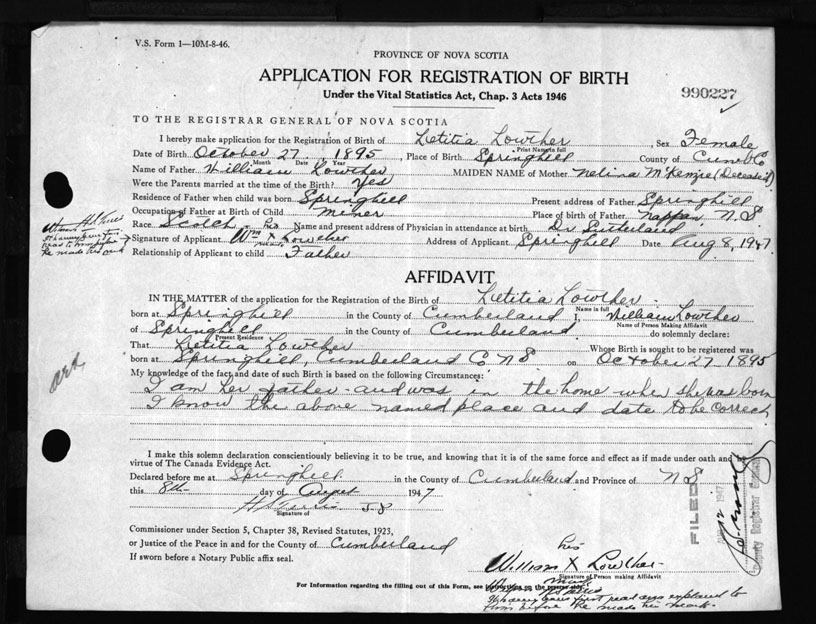 V.S. Form 1—10M-8-46.
PROVINCE OF NOVA SCOTIA
APPLICATION FOR REGISTRATION OF BIRTH
990227
Under the Vital Statistics Act, Chap. 3 Acts 1946
TO THE REGISTRAR GENERAL OF NOVA SCOTIA
I hereby make application for the Registration of Birth of Letitia Lowther Sex Female
Print Name in full
Date of Birth October 27, 1895, Place of Birth Springhill County of Cumb Co
Month Date Year
Name of Father William Lowther MAIDEN NAME of Mother Melina McKenzie (Deceased)
Were the Parents married at the time of the Birth? Yes
Residence of Father when child was born Springhill Present address of Father Springhill
Occupation of Father at Birth of Child miner Place of birth of Father Nappan N.S
Race Scotch Name and present address of Physician in attendance at birth Dr Sutherland
his
Signature of Applicant Wm X Lowther Address of Applicant Springhill Date Aug 8, 1947
mark
Relationship of Applicant to child Father
Witness
he made his mark
AFFIDAVIT
IN THE MATTER of the application for the Registration of the Birth of Letitia Lowther
Name in full
born at Springhill in the County of Cumberland I, William Lowther
Name of Person Making Affidavit
of Springhill in the County of Cumberland do solemnly declare:
Present Residence
That Letitia Lowther Whose Birth is sought to be registered was
born at Springhill, Cumberland Co N S on October 27 1895
My knowledge of the fact and date of such Birth is based on the following Circumstances:
I am her father - and was in the home when she was born
I know the above named place and date to be correct
I make this solemn declaration conscientiously believing it to be true, and knowing that it is of the same force and effect as if made under oath and by
virtue of The Canada Evidence Act.
Declared before me at Springhill in the County of Cumberland and Province of N S
this 8th day of August 1947
Signature of
Commissioner under Section 5, Chapter 38, Revised Statutes, 1923,
or Justice of the Peace in and for the County of Cumberland
If sworn before a Notary Public affix seal.
his
William X Lowther
Signature of Person making Affidavit
mark
For Information regarding the filling out of this Form, see instructions on the reverse side.
first read and explained to
him before he made his mark.
FILED
1947
Deputy Registrar General